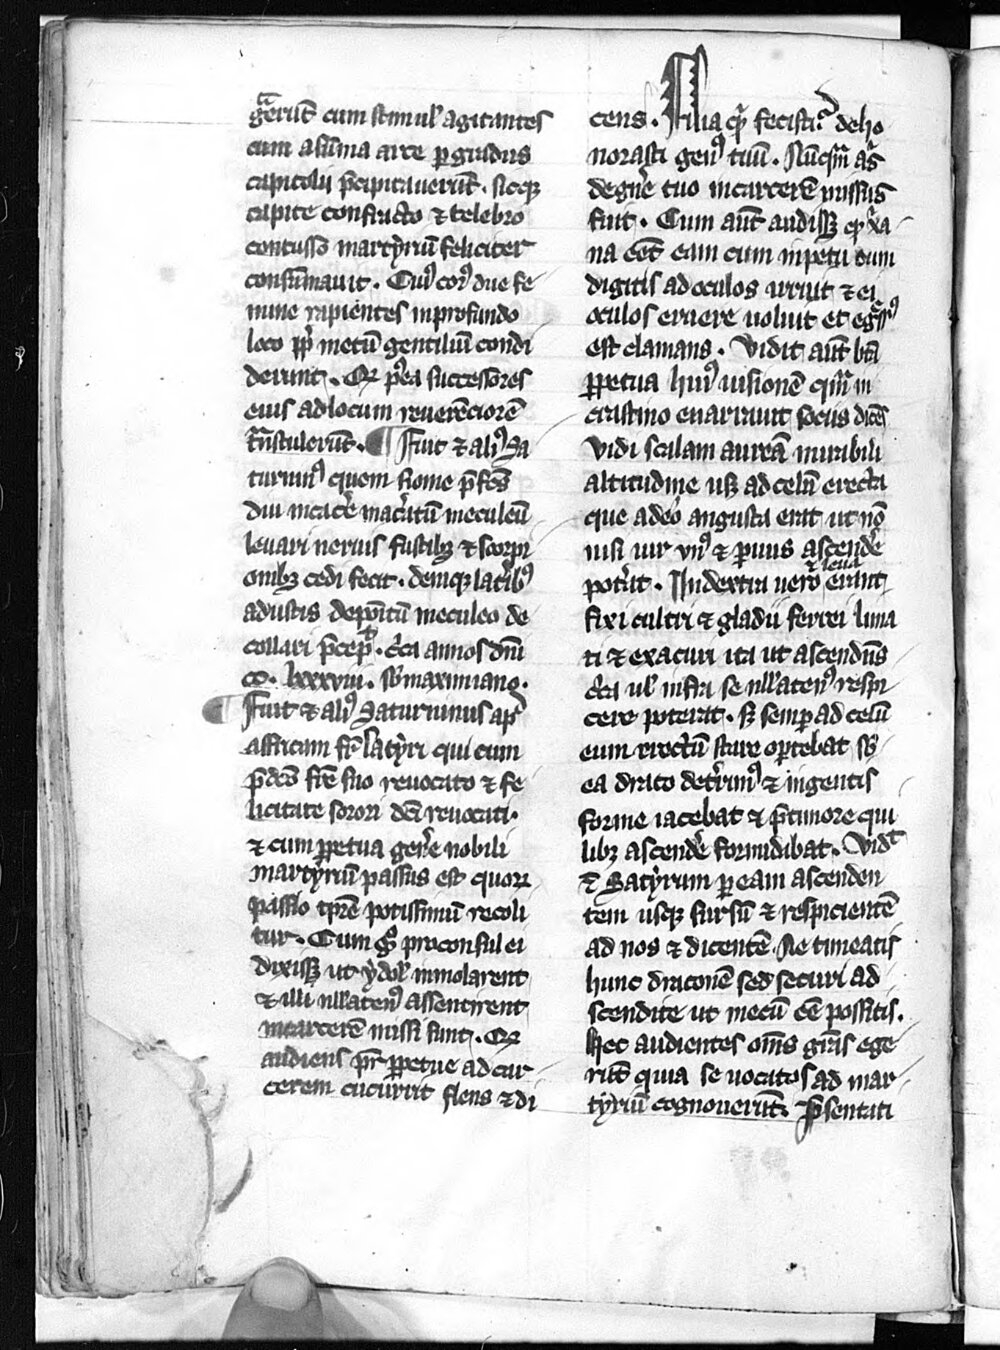 gͣerūt cum stimul᷒ agitantes
cum a sūma arce ꝑ gradus
capitolii p̄cipitauerūt . sicqꝫ
capite confracto ⁊ celebro
contusso martyriū feliciter
consūmauit . Cuiꝰ corpꝰ due fe
mine rapientes in profundo
loco ꝓpt᷒ metū gentiliū condi
derunt . Qꝫ pꝰea successores
eius ad locum reuerēciorē
trāstulerūt . ¶ Fuit ⁊ aliꝰ Sa
turninꝰ quem rome p̄fcūs
diu in carcere maceratū in eculeū
leuari neruis fustibꝫ ⁊ scorpi
onibꝫ cedi fecit . demūqꝫ lateribꝰ
adustis depositū in eculeo de
collari p̄cepit . circa annos dn̄i
cc . lxxxviii . sub maximiano .
Fuit ⁊ aliꝰ Saturninus apᵈ
affricam fr̄ satyri qui cum
p̄dco fr̄e suo reuocato ⁊ fe
licitate sorori dc̄i reuocati .
⁊ cum ꝑpetua genere nobili
martyriū passus est quorꝫ
passio tp̄re potissimū recoli
tur . Cum ergo proconsul ei
dixissꝫ ut ydolis inmolarent
⁊ illi nullatenꝰ assentirent
in carcerē missi sunt . Qꝫ
audiens pr̄ ꝑpetue ad car
cerem cucurrit flens ⁊ di
cens . Filia quid fecisti ? deho
norasti genꝰ tuū . Nūqͣm aliquis
de genere tuo in carcerē missus
fuit . Cum aūt audissꝫ ꝙ xp̄ia
na eēt eam cum inpetu cum
digitis ad oculos irruit ⁊ ei
oculos eruere uoluit et egressꝰ
est clamans . Vidit aūt bt̄a
ꝑpetua huiꝰ uisionē quam in
crastino enarrauit sociis dicēs
Vidi scalam aureā mirabili
altitudine usqꝫ ad celū erectā
que adeo angusta erat ut nō
nisi uir vnꝰ ⁊ paruus ascendere
poterat . In dextra uero ⁊ leua erant
fixi cultri ⁊ gladii ferrei lima
ti ⁊ exacuti ita ut ascendēs
circa uel infra se nullatenꝰ respi
cere poterat . sꝫ semꝑ ad celū
eum erectū stare oportebat sub
ea draco deterrimꝰ ⁊ ingentis
forme iacebat ⁊ p̄ timore qui
libꝫ ascendere formidabat . Vidit
⁊ Satyrum ꝑ eam ascenden
tem usqꝫ sursū ⁊ respicientē
ad nos ⁊ dicentē Ne timeatis
hunc draconē sed securi ad
scendite ut mecū eē possitis .
Hec audientes om̄s grās ege
rūt quia se uocatos ad mar
tyriū cognouerūt . P̄sentati